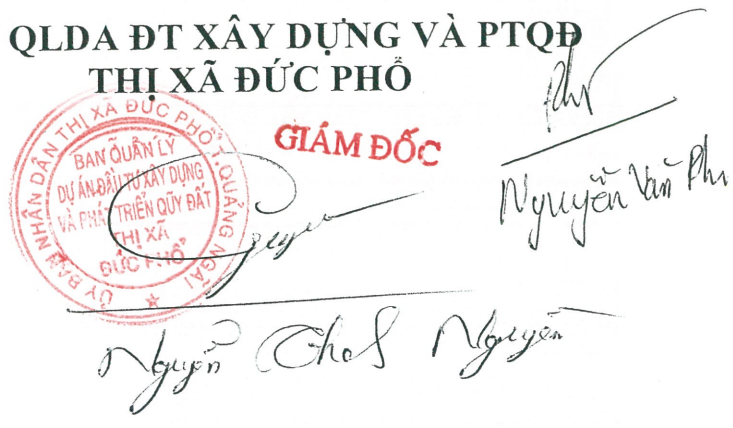 QLDA ĐT XÂY DỰNG VÀ PTQĐ
THỊ XÃ ĐỨC PHỔ
GIÁM ĐỐC
ỦY BAN NHÂN DÂN THỊ XÃ ĐỨC PHỔ T.QUẢNG NGÃI
BAN QUẢN LÝ
DỰ ÁN ĐẦU TƯ XÂY DỰNG
VÀ PHÁT TRIỂN QŨY ĐẤT
THỊ XÃ
ĐỨC PHỔ
Nguyễn Văn Phi
Nguyễn Nguyên